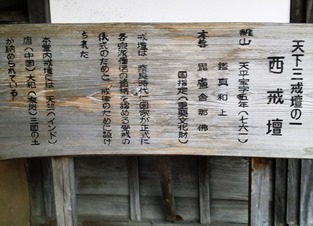 天下三戒壇の一
西戒壇
開山　天平宝字五年（七六一）
鑑真和上
本尊　毘盧舎那佛
国指定（重要文化財）
戒壇は、奈良時代に国家が正式に
各宗派僧侶の資格を認める受戒の
儀式のために、戒律のために設け
られた
本堂内戒壇には、天竺（インド）
唐（中国）大和（奈良）三国の土
が納められている。